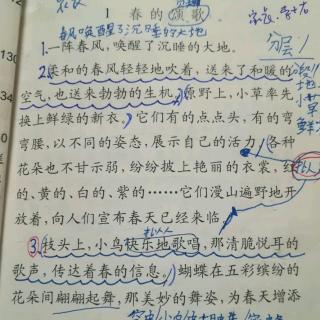 1 春的颂歌
风唤醒了沉睡的大地
1.一阵春风,唤醒了沉睡的大地。
分层
2.柔和的春风轻轻地吹着,送来了和暖的
空气,也送来勃勃的生机。原野上,小草率先
换上鲜绿的新衣。它们有的点点头,有的弯
弯腰,以不同的姿态,展示自己的活力,各种
花朵也不甘示弱,纷纷披上艳丽的衣裳,红
拟人
的、黄的、白的、紫的……它们漫山遍野地开
放着,向人们宣布春天已经来临。
拟人
3.枝头上,小鸟快乐地歌唱,那清脆悦耳的
歌声,传达着春的信息。蝴蝶在五彩缤纷的
花朵间翩翩起舞,那美妙的舞姿,为春天增添